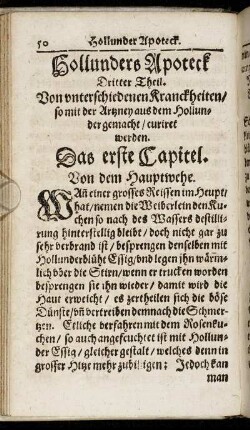 50 Hollunder Apoteck.
Hollunders Apoteck
Dritter Theil.
Von vnterschiedenen Kranckheiten/
so mit der Artzney aus dem Hollun-
der gemacht/ curiret
werden.
Das erste Capitel.
Von dem Hauptwehe.
WAñ einer grosses Reissen im Heupt/
hat/ nemen die Weiberlein den Ku-
chen so nach des Wassers destilli-
rung hinterstellig bleibt/ doch nicht gar zu
sehr verbrand ist/ besprengen denselben mit
Hollunderblüht Essig/ vnd legen ihn wärm-
lich vber die Stirn/ wenn er trucken worden
besprengen sie ihn wieder/ damit wird die
Haut erweicht/ es zertheilen sich die böse
Dünste/ vñ vertreiben demnach die Schmer-
tzen. Etliche verfahren mit dem Rosenku-
chen/ so auch angefeuchtet ist mit Hollun-
der Essig/ gleicher gestalt/ welches denn in
grosser Hitze mehr zubilligen; Jedoch kan
man